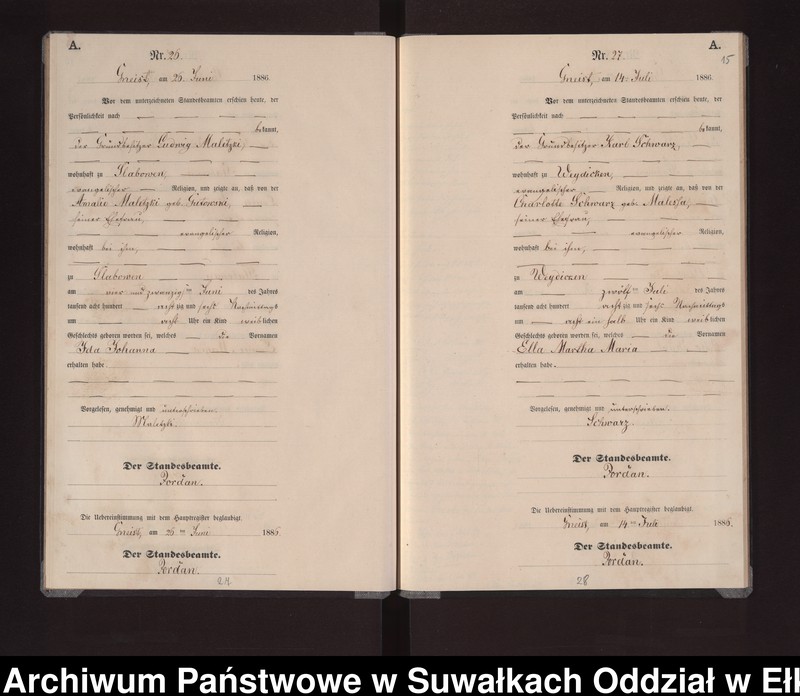 A.
Nr. 26.
Gneist, am 26. Juni 1886.
Vor dem unterzeichneten Standesbeamten erschien heute, der
Persönlichkeit nach
bekannt,
der Grundbesitzer Ludwig Maletzki,
wohnhaft zu Slabowen
evangelischer Religion, und zeigte an, daß von der
Amalie Maletzki geb.
seiner Ehefrau,
evangelischer Religion,
wohnhaft bei ihm,
zu Slabowen
am vier und zwanzigten Juni des Jahres
tausend acht hundert achtzig und sechs Nachmittags
um acht Uhr ein Kind weiblichen
Geschlechts geboren worden sei, welches die Vornamen
Ida Johanna
erhalten habe.
Vorgelesen, genehmigt und unterschrieben.
Maletzki.
Der Standesbeamte.
Jordan.
Die Uebereinstimmung mit dem Hauptregister beglaubigt
Gneist, am 26ten Juni 1886.
Der Standesbeamte.
Jordan.
27
A.
15
Nr. 27.
Gneist, am 14. Juli 1886.
Vor dem unterzeichneten Standesbeamten erschien heute, der
Persönlichkeit nach
bekannt,
der Grundbesitzer Karl Schwarz,
wohnhaft zu Weydicken,
evangelischer Religion, und zeigte an, daß von der
Charlotte Schwarz geb. Malessa,
seiner Ehefrau,
evangelischer Religion,
wohnhaft bei ihm,
zu Weydicken
am zwölften Juli des Jahres
tausend acht hundert achtzig und sechs Nachmittags
um acht ein halb Uhr ein Kind weiblichen
Geschlechts geboren worden sei, welches die Vornamen
Ella Martha Maria
erhalten habe.
Vorgelesen, genehmigt und unterschrieben.
Schwarz.
Der Standesbeamte.
Jordan.
Die Uebereinstimmung mit dem Hauptregister beglaubigt
Gneist, am 14ten Juli 1886.
Der Standesbeamte.
Jordan.
28
Archiwum Państwowe w Suwałkach Oddział w Eł